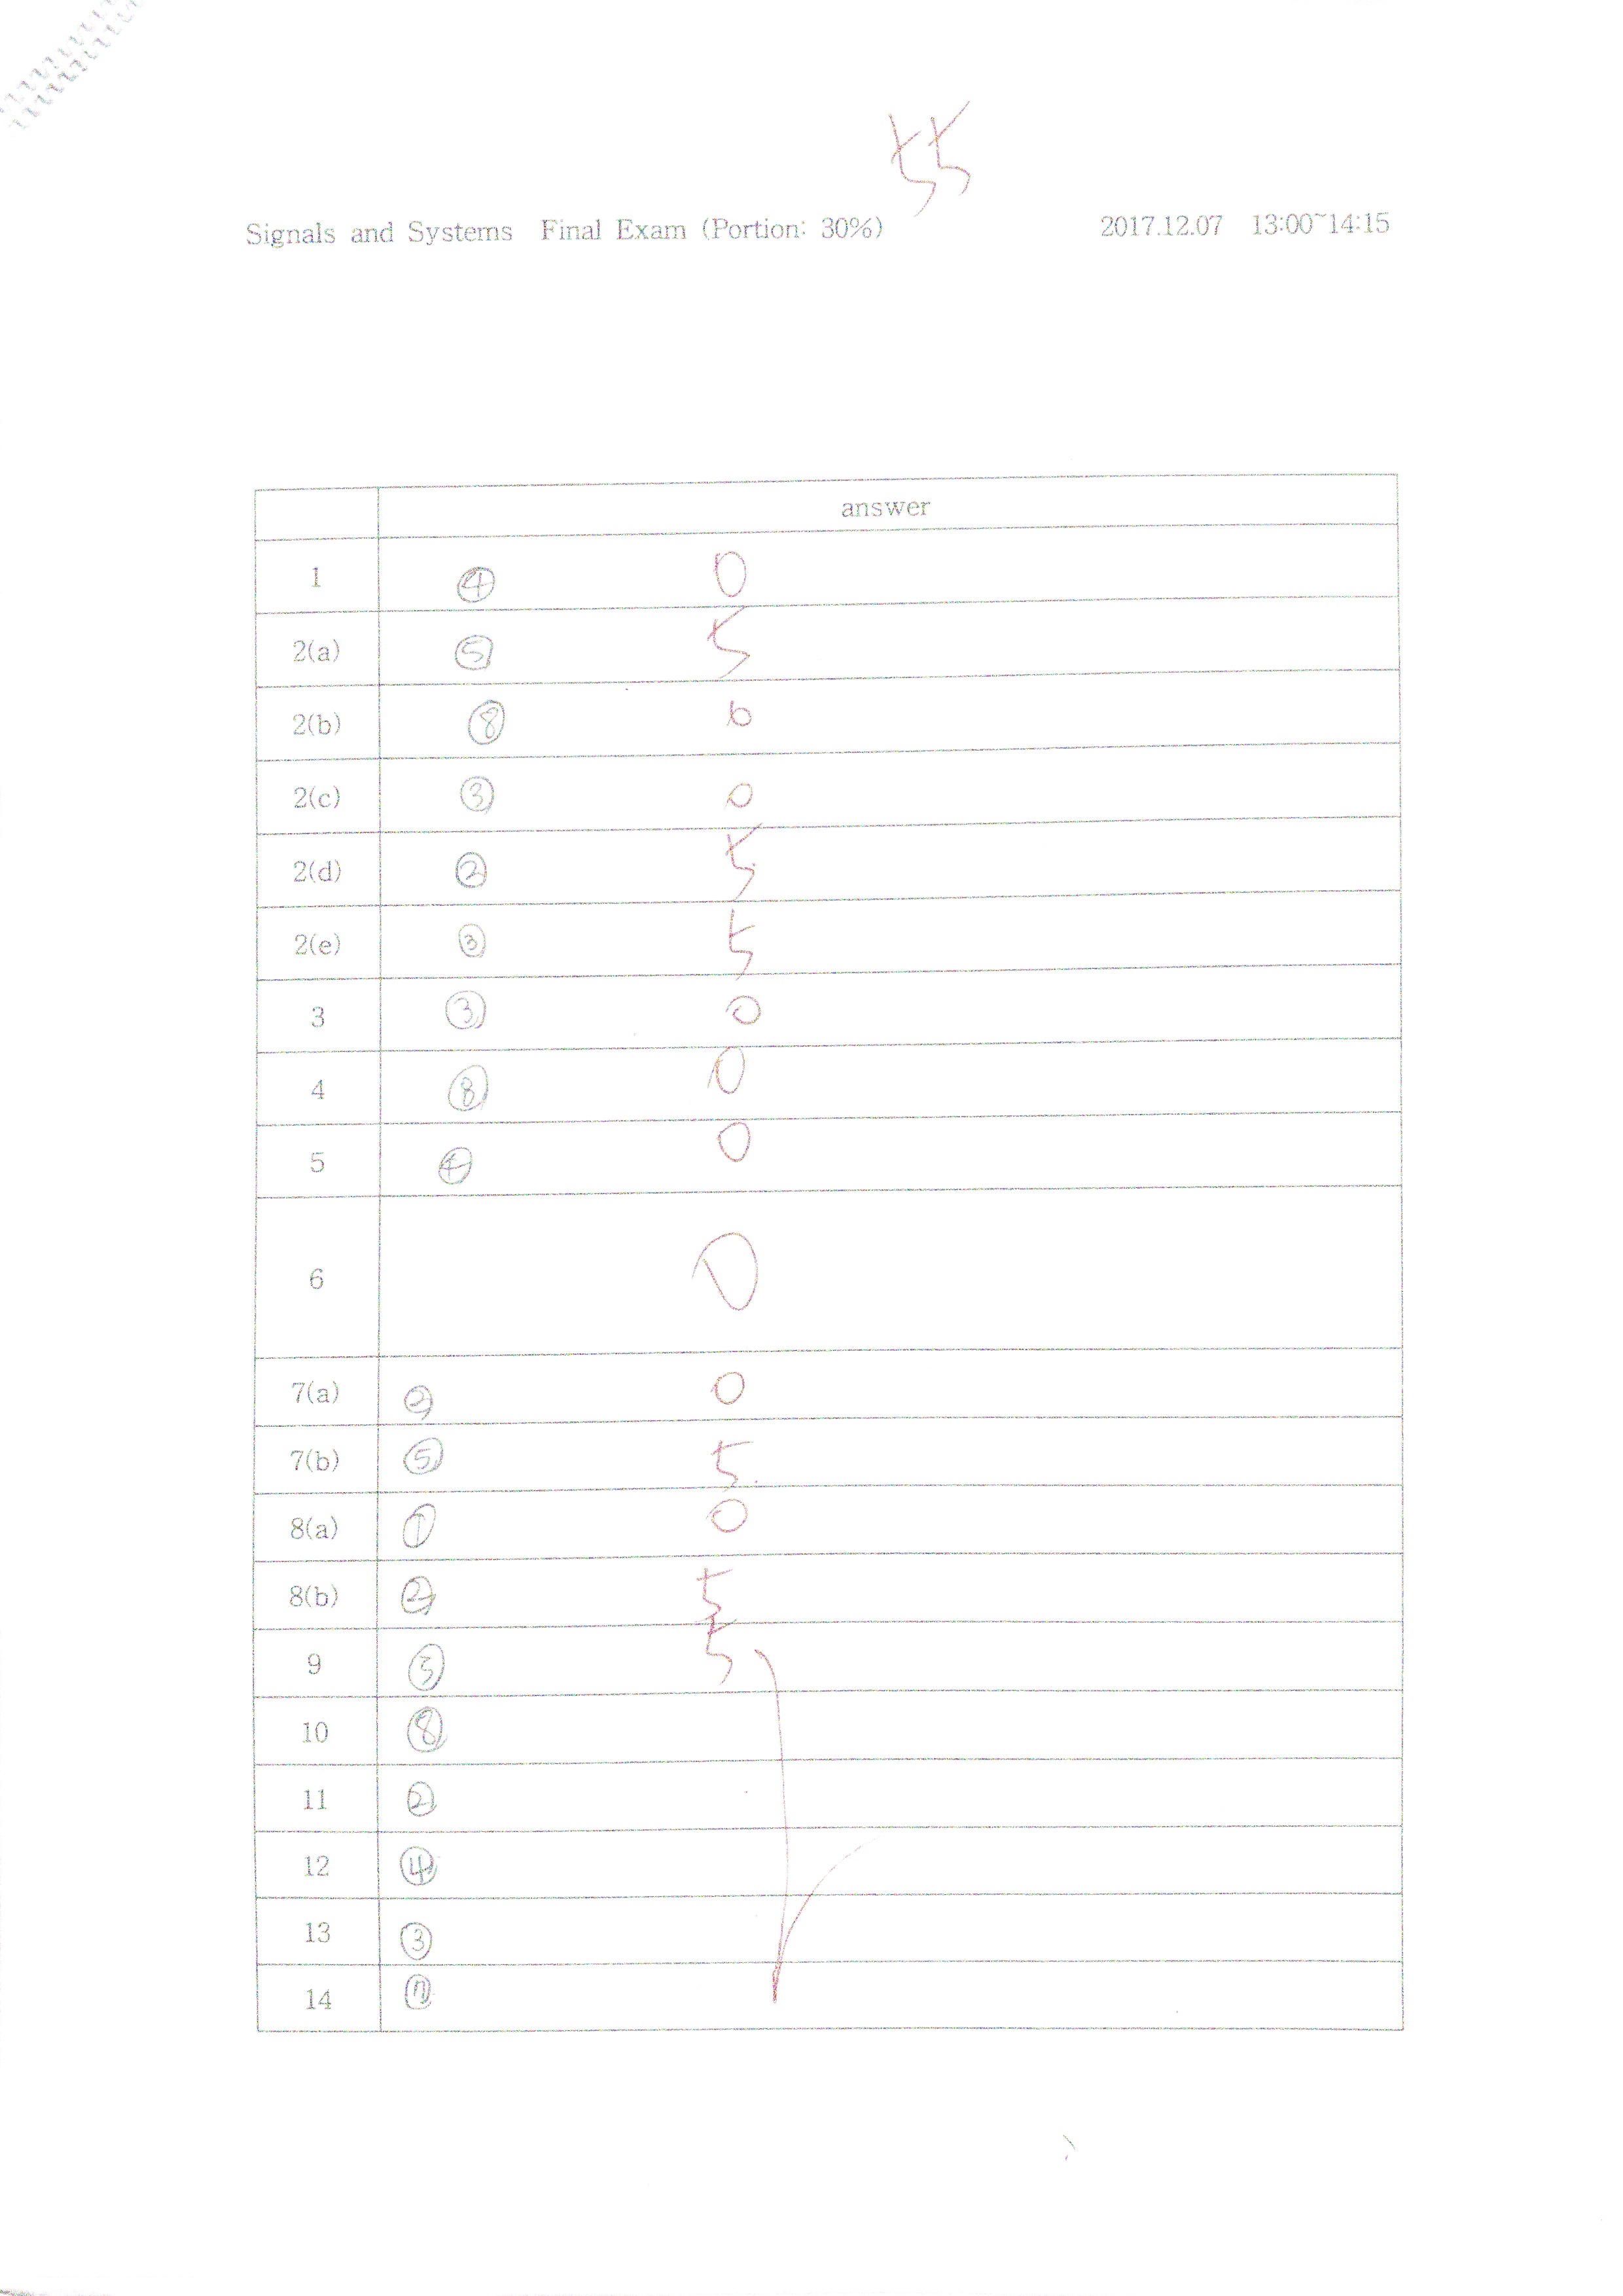 55
Signals and Systems Final Exam (Portion: 30%) 2017.12.07 13:00~14:15
answer
1 ④ 0
2(a) ⑤ 5
2(b) ⑧ 0
2(c) ③ 0
2(d) ② 5
2(e) ③ 5
3 ③ 0
4 ⑧ 0
5 ④ 0
6 0
7(a) ② 0
7(b) ⑤ 5
8(a) ① 0
8(b) ② 5
9 ③ 5
10 ⑧
11 ②
12 ④
13 ③
14